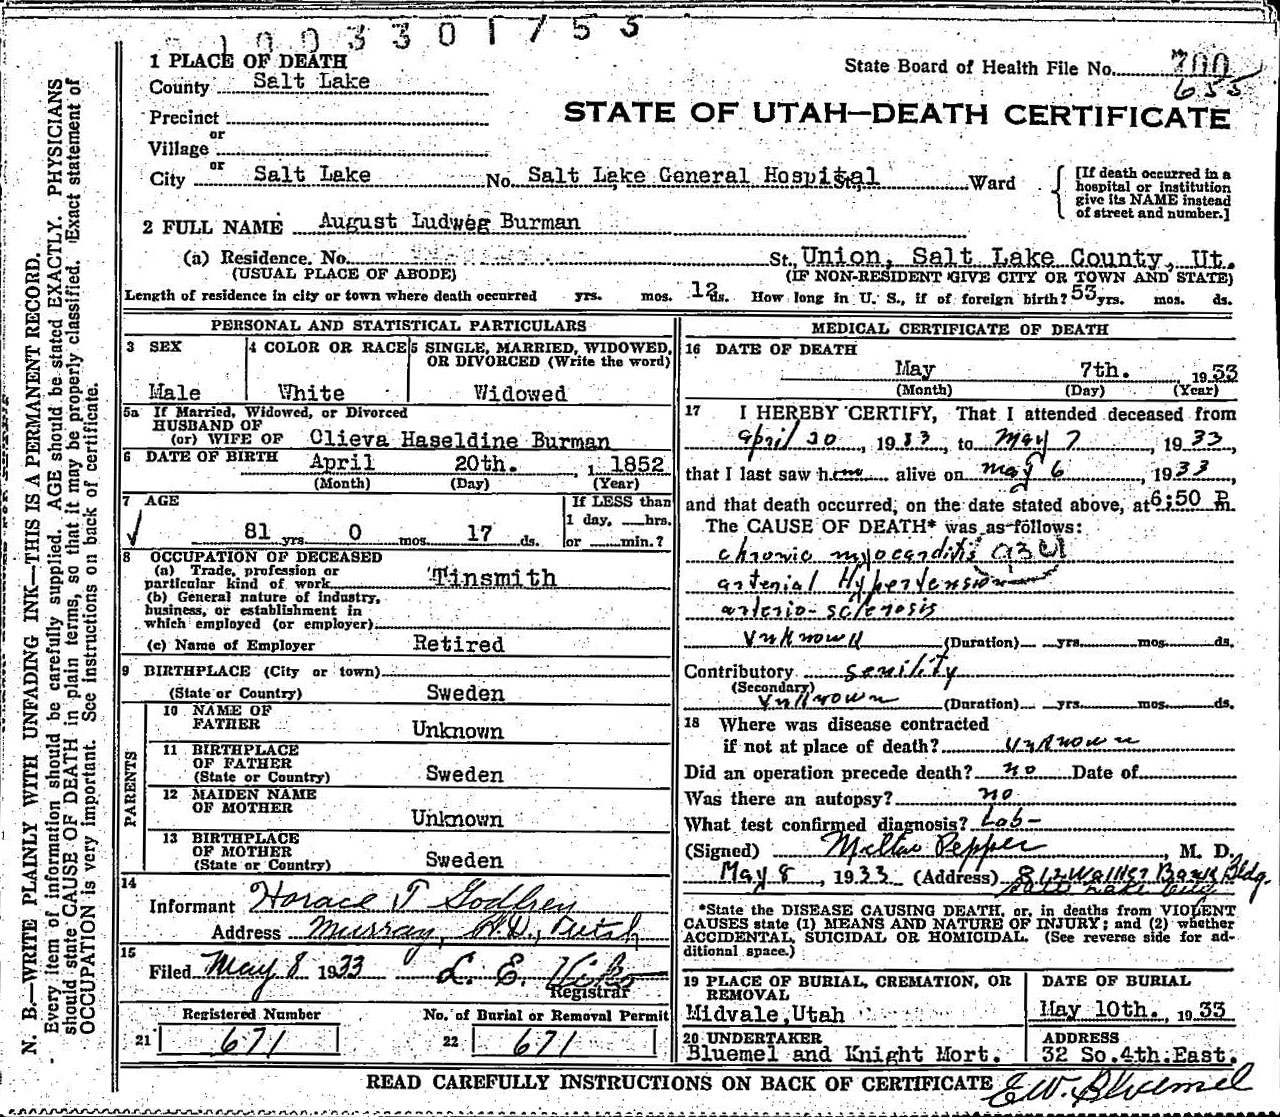 1003301753
1 PLACE OF DEATH
State Board of Health File No. 700
655
County Salt Lake
STATE OF UTAH—DEATH CERTIFICATE
Precinct
or
Village
or
City Salt Lake No. Salt Lake General Hospital St., Ward
[If death occurred in a hospital or institution give its NAME instead of street and number.]
2 FULL NAME August Ludweg Burman
(a) Residence. No. St., Union, Salt Lake County, Ut.
(USUAL PLACE OF ABODE) (IF NON-RESIDENT GIVE CITY OR TOWN AND STATE)
Length of residence in city or town where death occurred yrs. mos. 12 ds. How long in U. S., if of foreign birth? 53 yrs. mos. ds.
PERSONAL AND STATISTICAL PARTICULARS
3 SEX
Male
4 COLOR OR RACE
White
5 SINGLE, MARRIED, WIDOWED,
OR DIVORCED (Write the word)
Widowed
5a If Married, Widowed, or Divorced
HUSBAND OF
(or) WIFE OF Clieva Haseldine Burman
6 DATE OF BIRTH April 20th. , 1 1852
(Month) (Day) (Year)
7 AGE
81 yrs 0 mos. 17 ds.
If LESS than
1 day, hrs.
or min.?
8 OCCUPATION OF DECEASED
(a) Trade, profession or
particular kind of work Tinsmith
(b) General nature of industry,
business, or establishment in
which employed (or employer)
(c) Name of Employer Retired
9 BIRTHPLACE (City or town)
(State or Country) Sweden
PARENTS
10 NAME OF
FATHER Unknown
11 BIRTHPLACE
OF FATHER
(State or Country) Sweden
12 MAIDEN NAME
OF MOTHER Unknown
13 BIRTHPLACE
OF MOTHER
(State or Country) Sweden
14
Informant Horace T Godfrey
Address Murray, R.D., Utah
15
Filed May 8 1933 L. E.
Registrar
Registered Number
21 671
No. of Burial or Removal Permit
22 671
MEDICAL CERTIFICATE OF DEATH
16 DATE OF DEATH
May 7th. 1933
(Month) (Day) (Year)
17 I HEREBY CERTIFY, That I attended deceased from
April 30, 1933, to May 7, 1933,
that I last saw him alive on May 6, 1933
and that death occurred, on the date stated above, at 6:50 P. m.
The CAUSE OF DEATH* was as follows:
chronic myocarditis
arterial Hypertension
arterio-sclerosis
Unknown (Duration) yrs. mos. ds.
Contributory senility
(Secondary)
Unknown (Duration) yrs. mos. ds.
18 Where was disease contracted
if not at place of death? unknown
Did an operation precede death? no Date of
Was there an autopsy? no
What test confirmed diagnosis? Lab-
(Signed) Milton Pepper, M. D.
May 8, 1933 (Address) 812 Walker Bank Bldg.
Salt Lake City
*State the DISEASE CAUSING DEATH, or, in deaths from VIOLENT
CAUSES state (1) MEANS AND NATURE OF INJURY; and (2) whether
ACCIDENTAL, SUICIDAL OR HOMICIDAL. (See reverse side for ad-
ditional space.)
19 PLACE OF BURIAL, CREMATION, OR
REMOVAL
Midvale, Utah
DATE OF BURIAL
May 10th., 1933
20 UNDERTAKER
Bluemel and Knight Mort.
ADDRESS
32 So. 4th. East.
READ CAREFULLY INSTRUCTIONS ON BACK OF CERTIFICATE
E.W. Bluemel
N. B.—WRITE PLAINLY WITH UNFADING INK—THIS IS A PERMANENT RECORD.
Every item of information should be carefully supplied. AGE should be stated EXACTLY. PHYSICIANS
should state CAUSE OF DEATH in plain terms, so that it may be properly classified. Exact statement of
OCCUPATION is very important. See instructions on back of certificate.